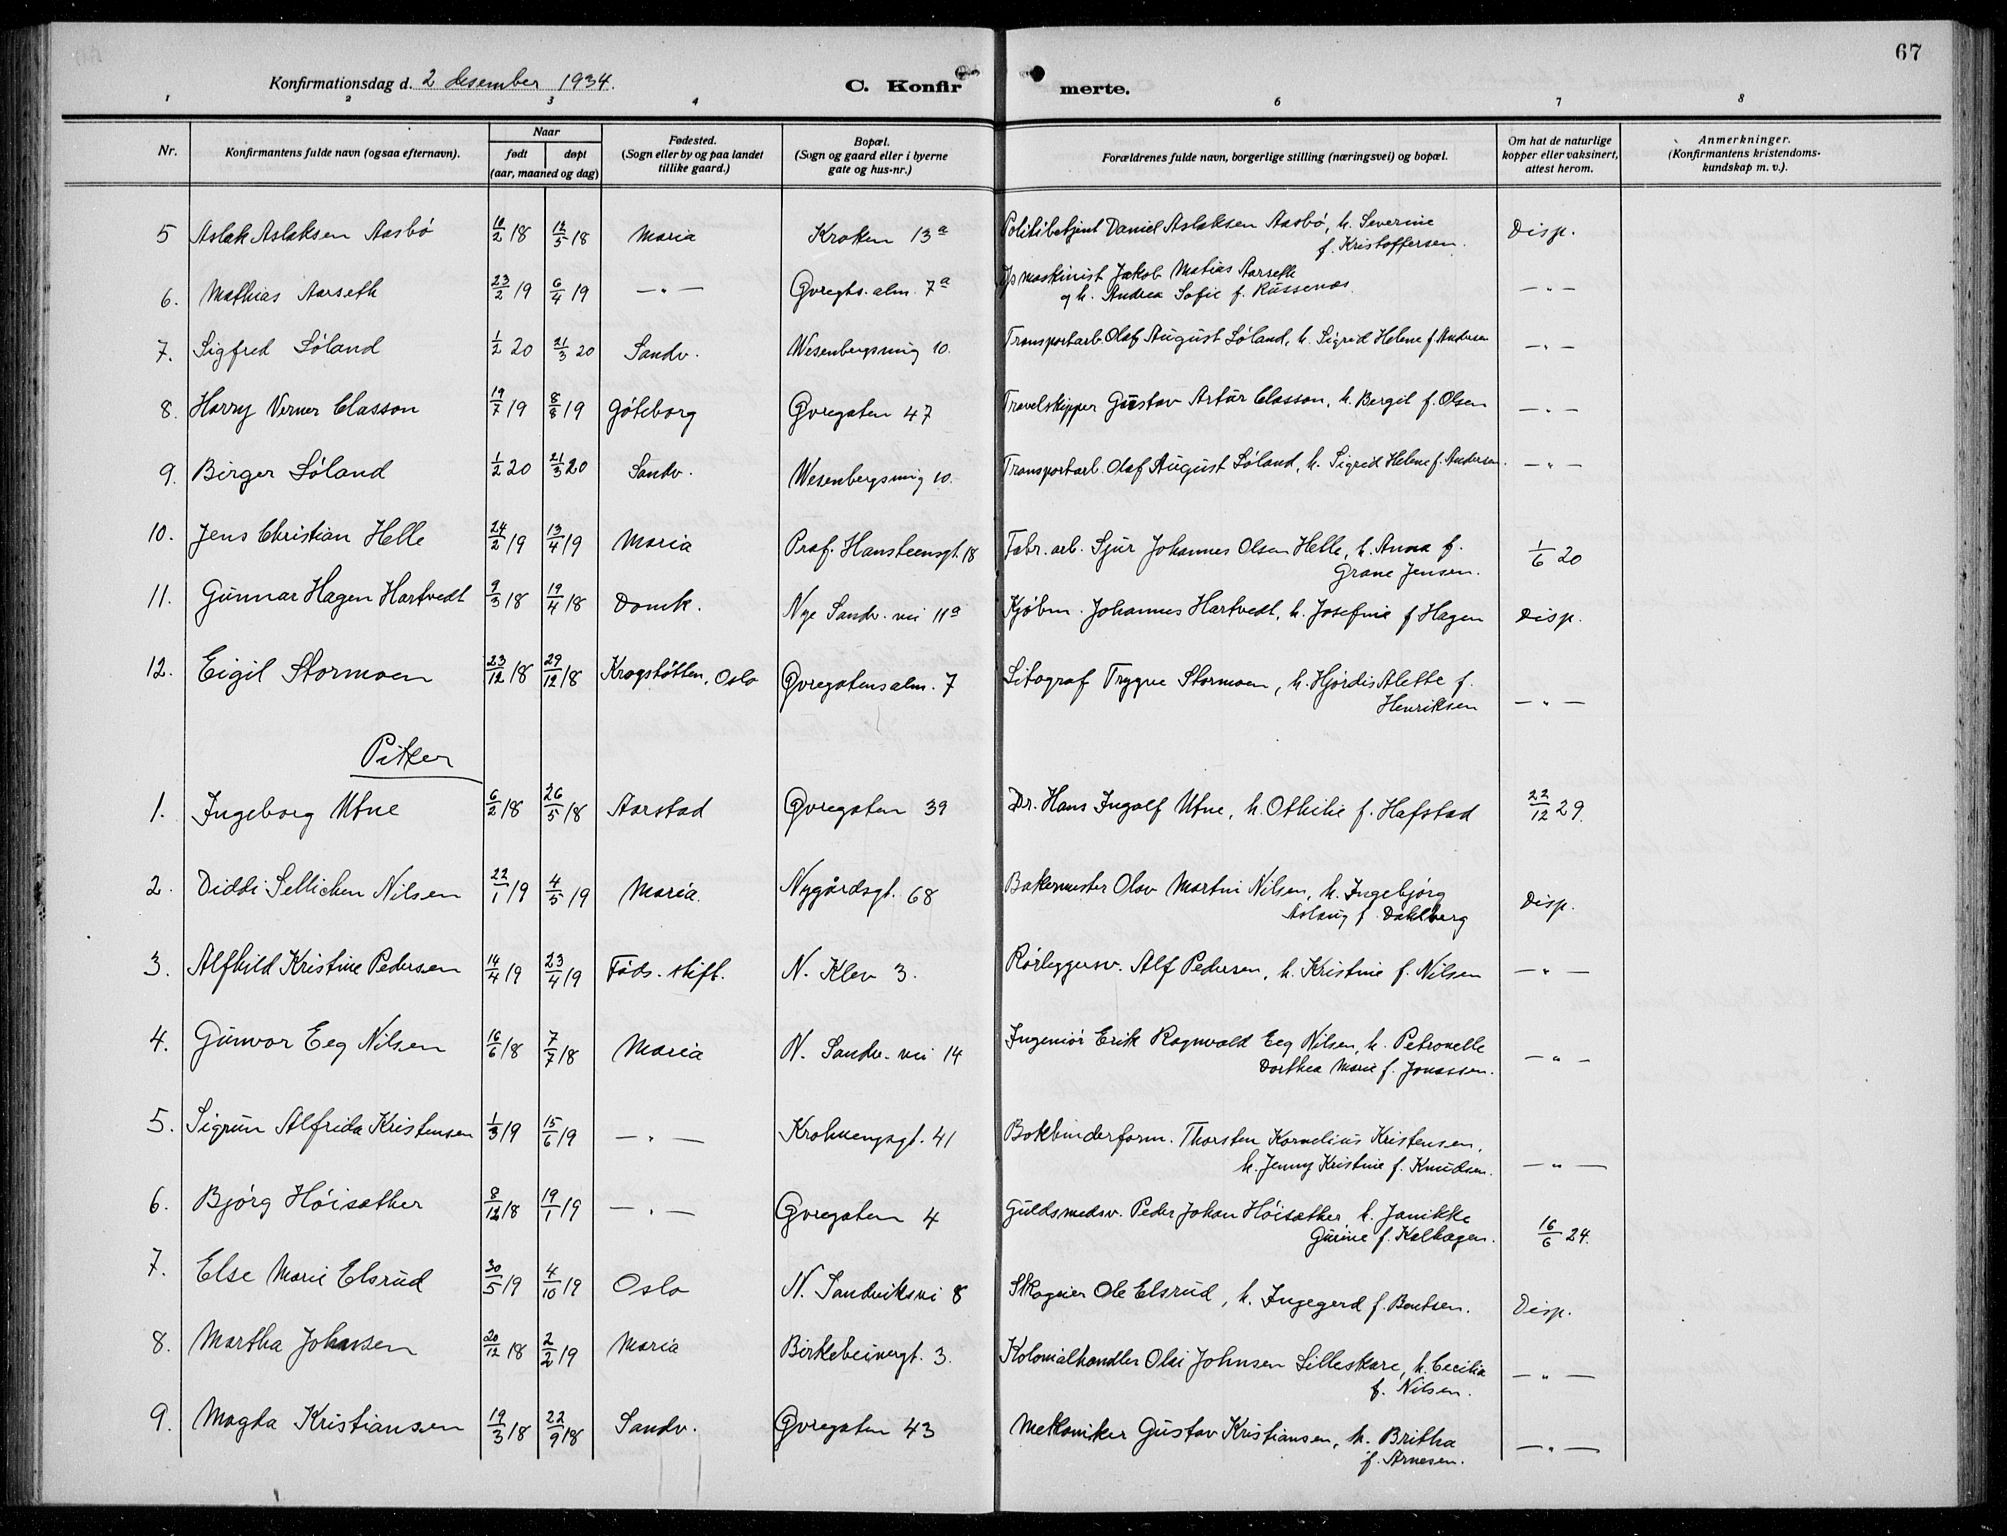 67
Konfirmationsdag d. 2 desember 1934.
C. Konfirmerte.
1 2 3 4 6 7 8
Nr. Konfirmantens fulde navn (ogsaa efternavn). Naar født døpt (aar, maaned og dag) Fødested. (Sogn eller by og paa landet tillike gaard.) Bopæl. (Sogn og gaard eller i byerne gate og hus-nr.) Forældrenes fulde navn, borgerlige stilling (næringsvei) og bopæl. Om hat de naturlige kopper eller vaksinert, attest herom. Anmerkninger. (Konfirmantens kristendoms-kundskap m. v.).
5 Aslak Aslaksen Aasbö 10/2 18 12/5 18 Maria Kroken 13a Politibetjent Daniel Aslaksen Aasbö, h. Severine Disp.
f. Kristoffersen.
6. Mathias Aarseth 23/2 19 6/4 19 —"— Øvregts. alm. 7a maskinist Jakob Matias Aarseth —"—
og h. Andrea Sofie f. Russenes
7. Sigfred Söland 1/2 20 21/3 20 Sandv. Wesenbergsmug 10. Transportarb. Olaf August Söland, h. Sigrid Helene f. Andersen —"—
8. Harry Verner Classon 19/7 19 8/8 19 Göteborg Øvregaten 47 Travelskipper Gustav Artur Classon, h. Bergit f. Olsen —"—
9. Birger Söland 1/2 20 21/3 20 Sandv. Wesenbergsmug 10. Transportarb. Olaf August Söland, h. Sigrid Helene f. Andersen. —"—
10. Jens Christian Helle 24/2 19 13/4 19 Maria Prof. Hansteensgt. 18 Fabr. arb. Sjur Johannes Olsen Helle, h. Anna f. 1/6 20
Grane Jensen.
11. Gunnar Hagen Hartvedt 9/3 18 19/4 18 Domk. Nye Sandv. vei 11a Kjöbm. Johannes Hartvedt, h. Josefine f Hagen Disp.
12. Eigil Stormoen 23/12 18 29/12 18 Krogstötten, Oslo Øvregatens alm. 7 Litograf Trygve Stormoen, h. Hjördis Alette f. —"—
Henriksen
Piker
1. Ingeborg Utne 6/2 18 26/5 18 Aarstad Øvregaten 39 Dr. Hans Ingolf Utne, h. Othilie f. Hafstad 22/12 29.
2. Diddi Sellicken Nilsen 22/1 19 4/5 19 Maria. Nygårdsgt. 68 Bakermester Olav Martin Nilsen, h. Ingebjörg Disp.
Aslaug f. Dahlberg
3. Alfhild Kristine Pedersen 14/4 19 23/4 19 Föds. stift. N. Klev 3. Rörleggersv. Alf Pedersen, h. Kristine f. Nilsen —"—
4. Gunvor Eeg Nilsen 16/6 18 7/7 18 Maria N. Sandv. vei 14 Ingeniör Erik Ragnvald Eeg Nilsen, h. Petronelle —"—
Dorthea Marie f. Jonassen.
5. Sigrun Alfrida Kristensen 1/3 19 15/6 19 —"— Krohnengsgt. 41 Bokbinderform. Thorsten Kornelius Kristensen,
h. Jenny Kristine f. Knudsen. —"—
6. Björg Höisæther 8/12 18 19/1 19 —"— Øvregaten 4 Guldsmedsv. Peder Johan Höisæther, h. Janikke 16/6 24.
Gurine f. Kalhagen.
7. Else Marie Elsrud 30/5 19 4/10 19 Oslo N. Sandviksvei 8 Skogeier Ole Elsrud, h. Ingegerd f. Bentsen. Disp.
8. Martha Johnsen 20/12 18 2/2 19 Maria Birkebeinergt. 3. Kolonialhandler Olai Johnsen Lilleskare, h. Cecilia —"—
f. Nilsen.
9. Magda Kristiansen 19/3 18 22/9 18 Sandv. Øvregaten 43 Mekaniker Gustav Kristiansen, h. Britha —"—
f. Arnesen.